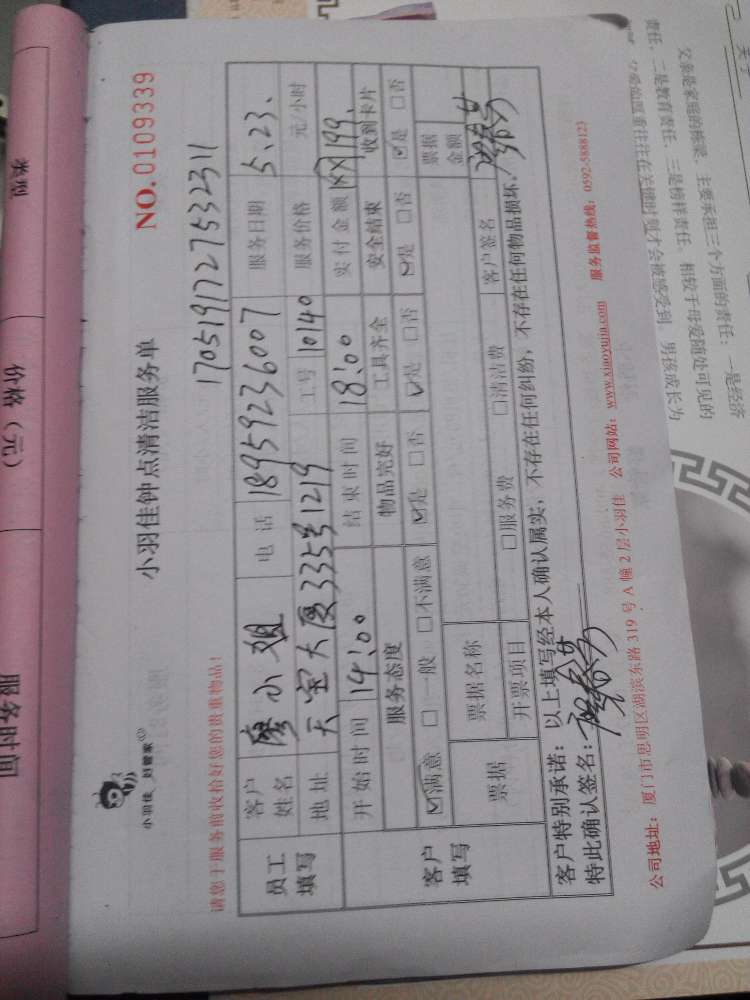 小羽佳 好管家
小羽佳钟点清洁服务单
NO.0109339
17051917275323​11
请您于服务前收拾好您的贵重物品！
员工填写
客户姓名 廖小姐 电话 18959236007 服务日期 5.23.
地址 天宝大厦335号1219 工号 10140 服务价格 元/小时
开始时间 14:00 结束时间 18:00 实付金额 199.
客户填写
服务态度 物品完好 工具齐全 安全结束 收到卡片
☑满意 □一般 □不满意 ☑是 □否 ☑是 □否 ☑是 □否 ☑是 □否
票据 票据名称 票据金额
开票项目 □服务费 □清洁费 客户签名
客户特别承诺：以上填写经本人确认属实，不存在任何纠纷，不存在任何物品损坏．
特此确认签名：
公司地址：厦门市思明区湖滨东路 319 号 A 幢 2 层小羽佳 公司网站：www.xiaoyujia.com 服务监督热线：0592-5888123
类型
价格（元）
服务时间
父亲是家庭的栋梁，主要承担三个方面的责任：一是经济
责任，二是教育责任，三是榜样责任。相较于母爱随处可见的
往往在关键时刻才会被感受到，男孩成长为